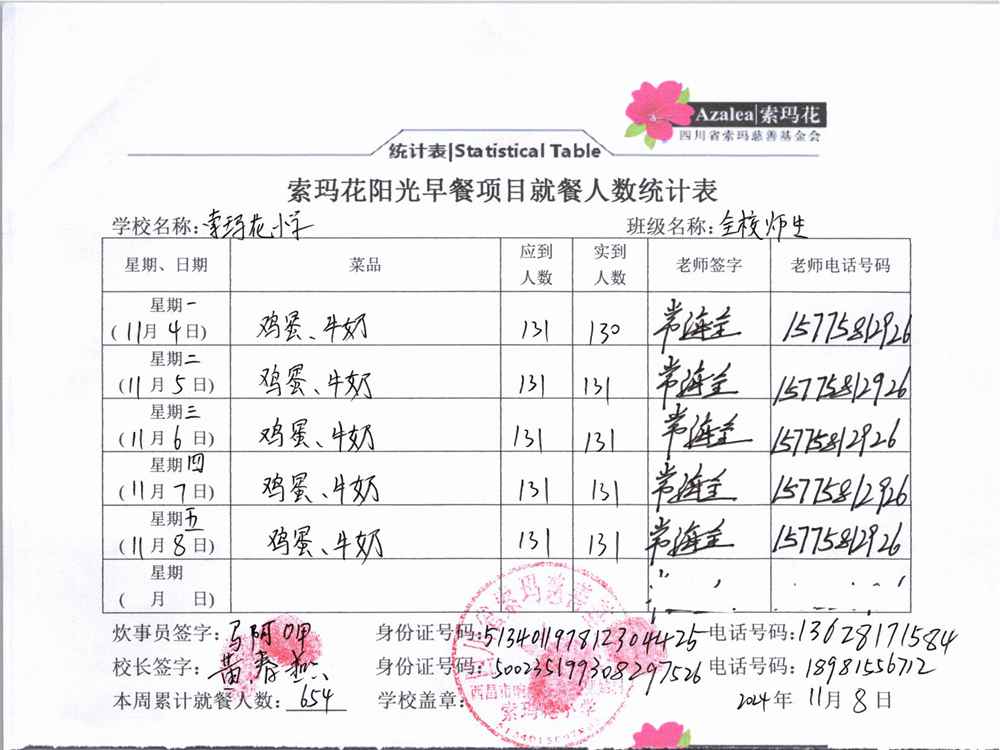 Azalea|索玛花
四川省索玛慈善基金会
统计表|Statistical Table
索玛花阳光早餐项目就餐人数统计表
学校名称:索玛花小学 班级名称:全校师生
星期、日期 菜品 应到人数 实到人数 老师签字 老师电话号码
星期一 (11月4日) 鸡蛋、牛奶 131 130 常海全 15775812926
星期二 (11月5日) 鸡蛋、牛奶 131 131 常海全 15775812926
星期三 (11月6日) 鸡蛋、牛奶 131 131 常海全 15775812926
星期四 (11月7日) 鸡蛋、牛奶 131 131 常海全 15775812926
星期五 (11月8日) 鸡蛋、牛奶 131 131 常海全 15775812926
星期 ( 月 日)
炊事员签字:马阿呷 身份证号码:513401197812304425 电话号码:13628171584
校长签字:黄春燕 身份证号码:500235199308297526 电话号码:18981556712
本周累计就餐人数:654 学校盖章: 2024年11月8日
索玛花小学